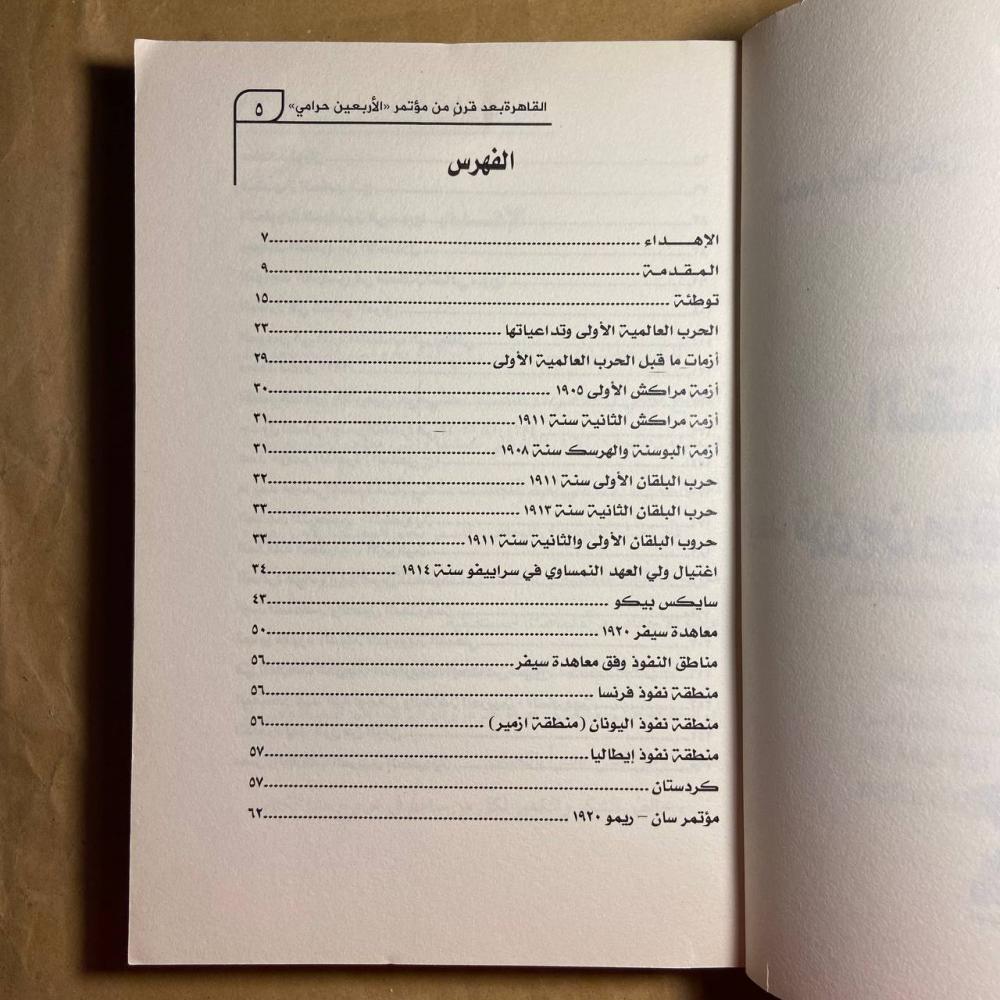 القاهرة بعد قرن من مؤتمر «الأربعين حرامي» ٥
الفهرس
الإهـــداء ........ ٧
المـقـدمـة ........ ٩
توطئة ........ ١٥
الحرب العالمية الأولى وتداعياتها ........ ٢٣
أزمات ما قبل الحرب العالمية الأولى ........ ٢٩
أزمة مراكش الأولى ١٩٠٥ ........ ٣٠
أزمة مراكش الثانية سنة ١٩١١ ........ ٣١
أزمة البوسنة والهرسك سنة ١٩٠٨ ........ ٣١
حرب البلقان الأولى سنة ١٩١١ ........ ٣٢
حرب البلقان الثانية سنة ١٩١٣ ........ ٣٣
حروب البلقان الأولى والثانية سنة ١٩١١ ........ ٣٣
اغتيال ولي العهد النمساوي في سراييفو سنة ١٩١٤ ........ ٣٤
سايكس بيكو ........ ٤٣
معاهدة سيفر ١٩٢٠ ........ ٥٠
مناطق النفوذ وفق معاهدة سيفر ........ ٥٦
منطقة نفوذ فرنسا ........ ٥٦
منطقة نفوذ اليونان (منطقة ازمير) ........ ٥٦
منطقة نفوذ إيطاليا ........ ٥٧
كردستان ........ ٥٧
مؤتمر سان – ريمو ١٩٢٠ ........ ٦٢